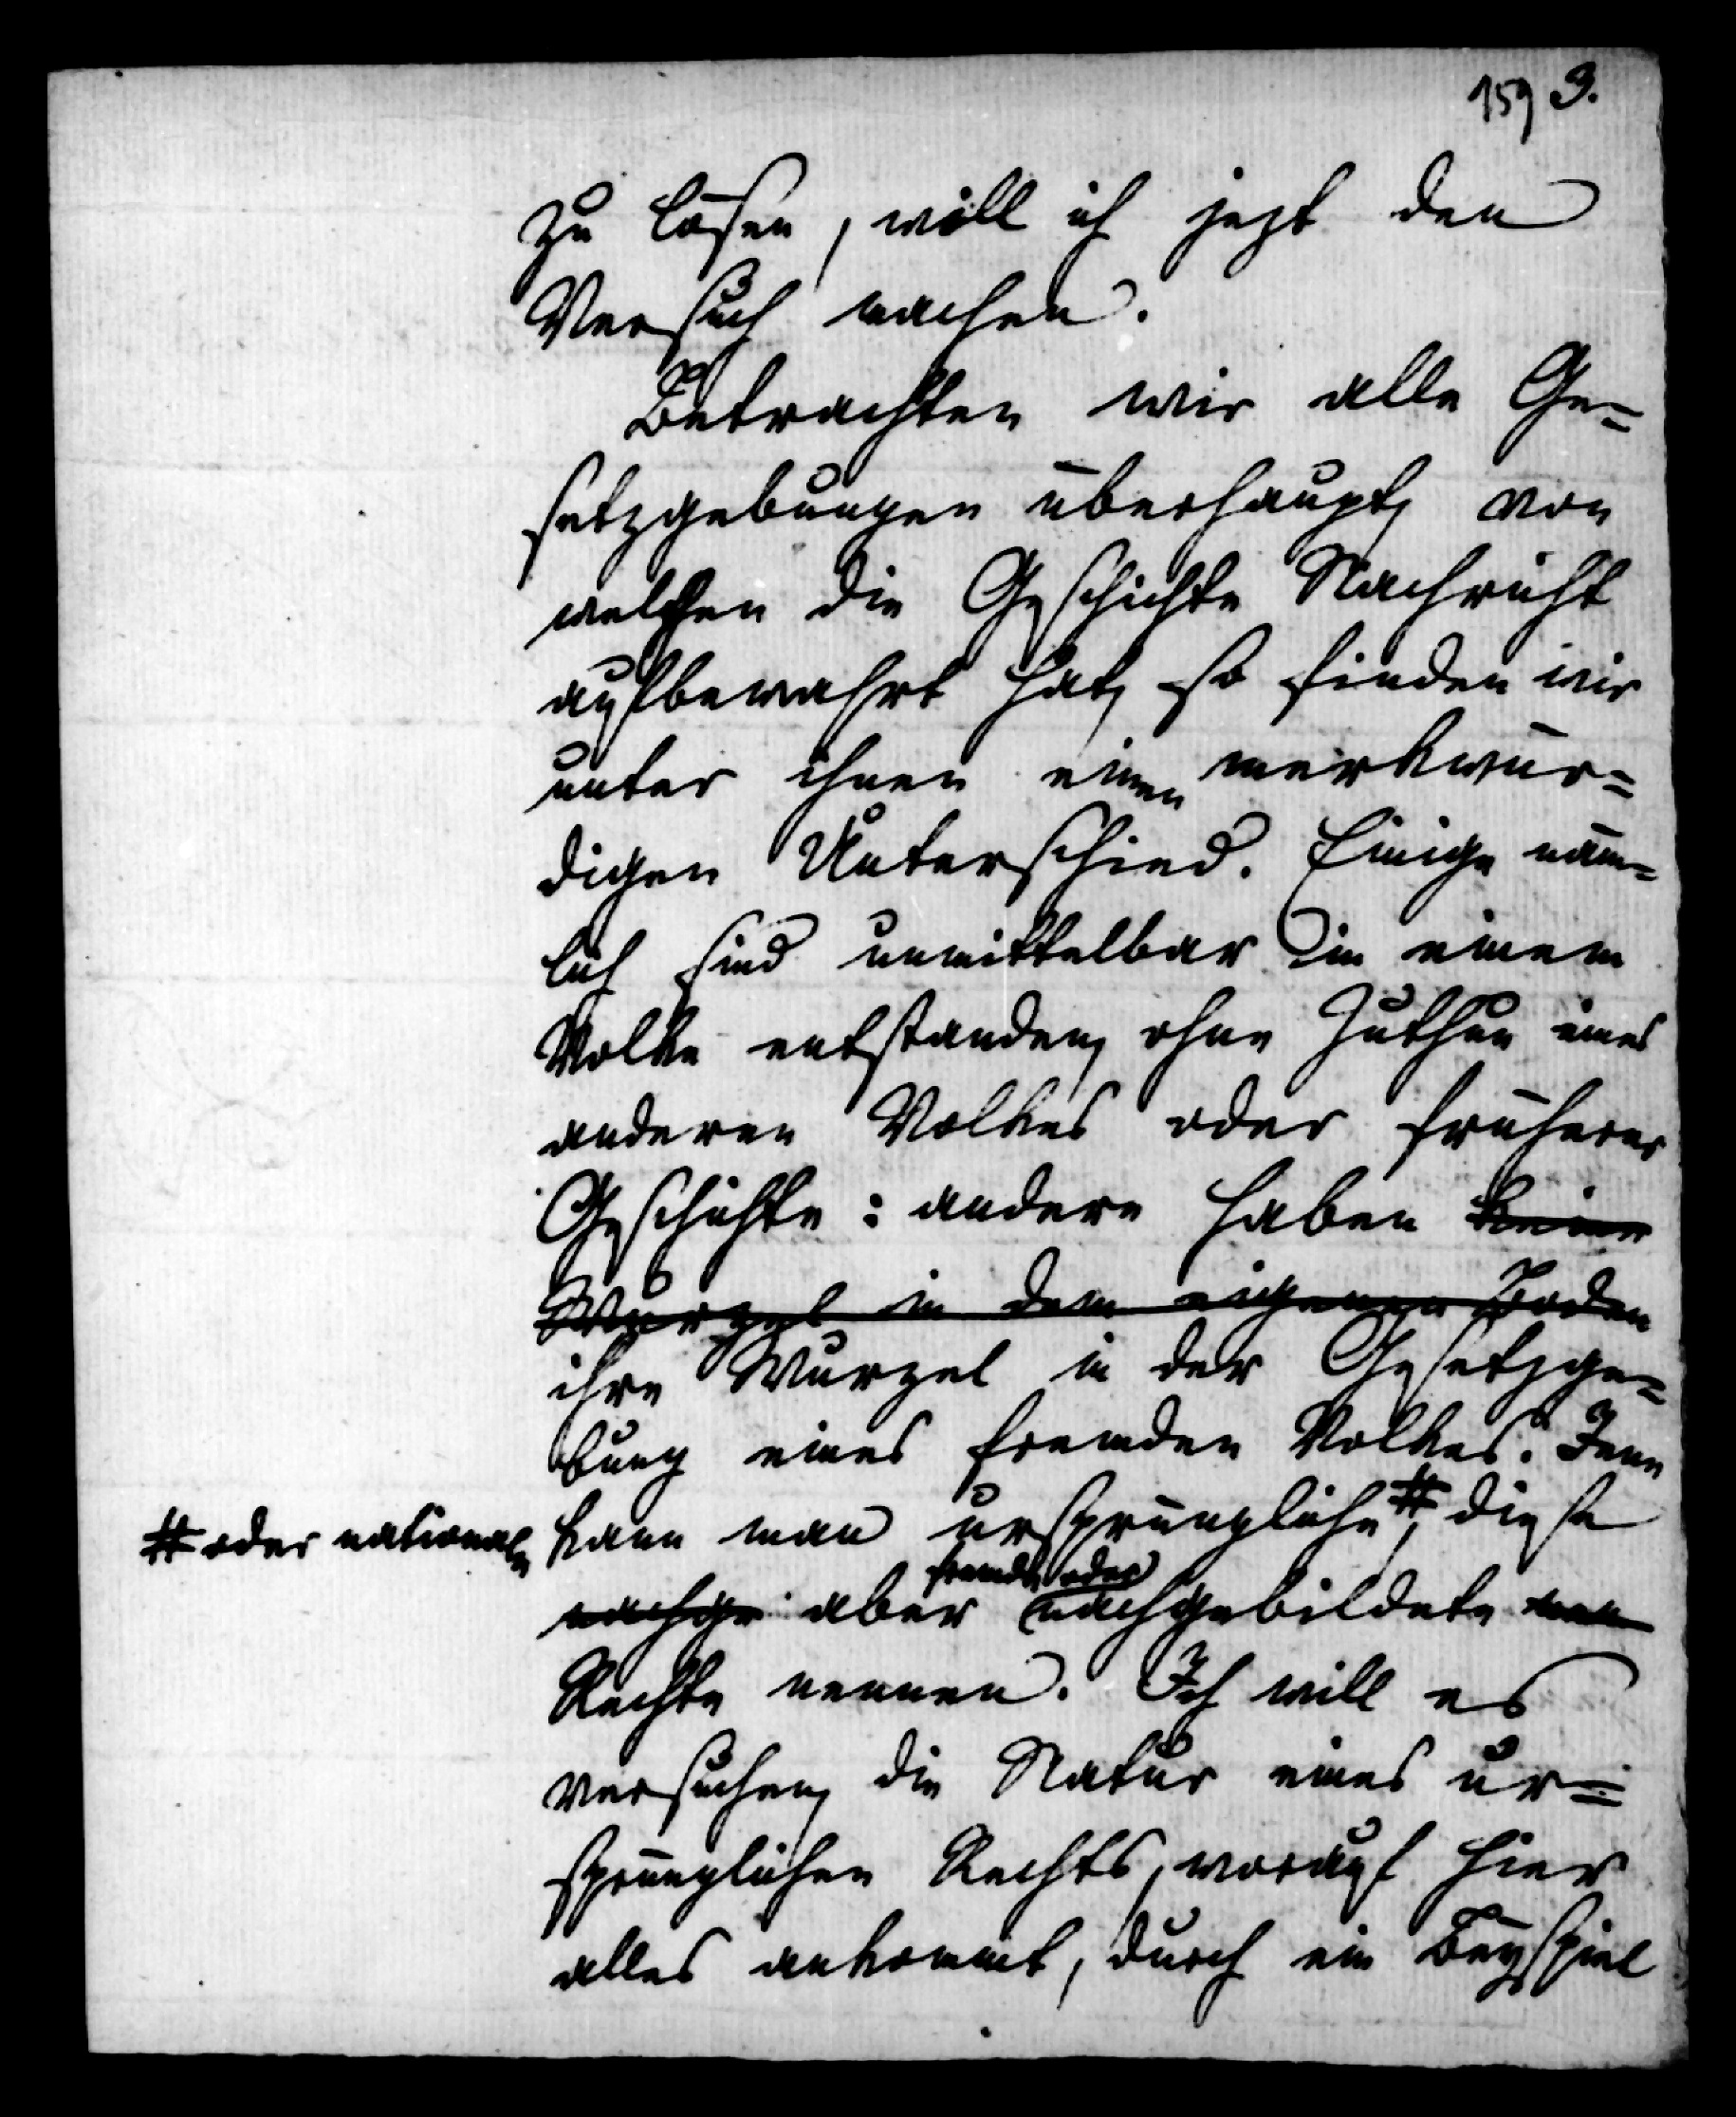 159 3.
zu lösen, will ich jezt den
Versuch machen.
Betrachten wir alle Ge=
setzgebungen überhaupt, von
welchen die Geschichte Nachricht
aufbewahrt hat, so finden wir
unter ihnen einen merkwür=
digen Unterschied. Einige näm=
lich sind unmittelbar in einem
Volke entstanden, ohne Zuthun eines
anderen Volkes oder früherer
Geschichte: andere haben keine
Wurzel in dem eigenen Boden
ihre Wurzel in der Gesetzge=
bung eines fremden Volkes. Jene
# oder nationale
kann man ursprüngliche #, diese
fremde oder
nachge aber nachgebildete
Rechte nennen. Ich will es
versuchen, die Natur eines ur=
sprünglichen Rechts, worauf hier
alles ankommt, durch ein Beyspiel